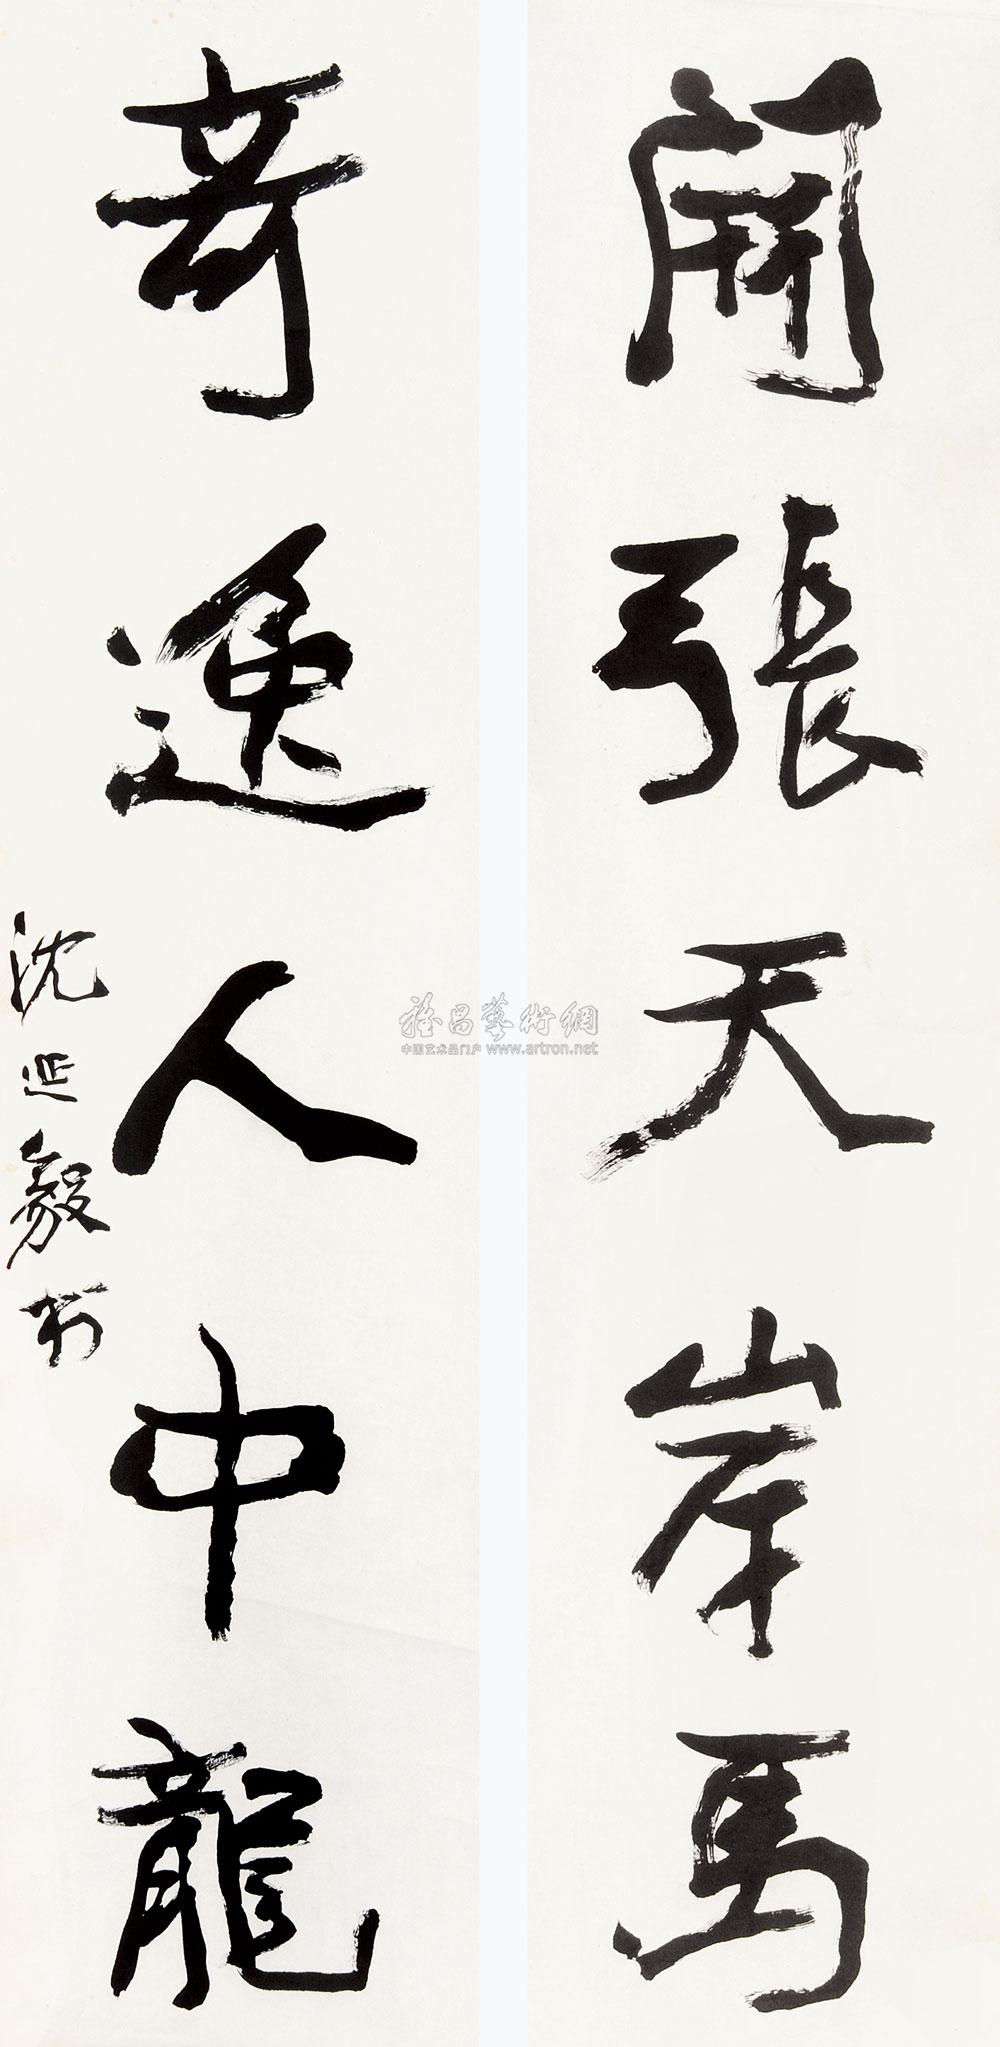 開張天岸馬
奇逸人中龍
沈延毅書
雅昌藝術網
中国艺术品门户 www.artron.net